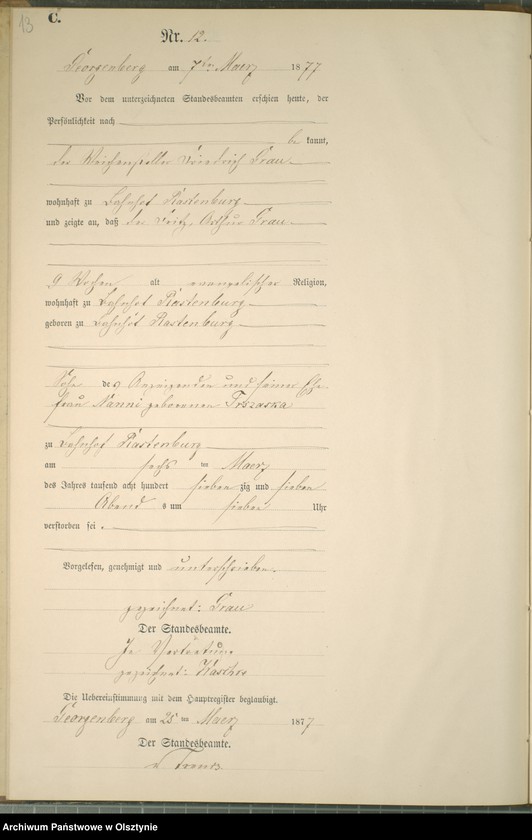 13
C.
Nr. 12.
Georgenberg am 7ten Maerz 1877
Vor dem unterzeichneten Standesbeamten erschien heute, der
Persönlichkeit nach
be kannt,
der Weichensteller Friedrich Grau
wohnhaft zu Bahnhof Rastenburg
und zeigte an, daß der Fritz Arthur Grau
9 Wochen alt evangelischer Religion,
wohnhaft zu Bahnhof Rastenburg
geboren zu Bahnhof Rastenburg
Sohn des Anzeigenden und seiner Ehe-
frau Nanni geborenen
zu Bahnhof Rastenburg
am sechs ten Maerz
des Jahres tausend acht hundert sieben zig und sieben
Abend s um sieben Uhr
verstorben sei.
Vorgelesen, genehmigt und unterschrieben.
gezeichnet: Grau
Der Standesbeamte.
In Vertretung
gezeichnet:
Die Uebereinstimmung mit dem Hauptregister beglaubigt.
Georgenberg am 25 ten Maerz 1877
Der Standesbeamte.
Archiwum Państwowe w Olsztynie